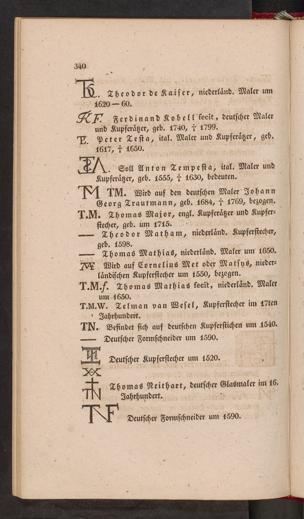 340
Theodor de Kaiser, niederländ. Maler um
1620 — 60.
K F. Ferdinand Kobell fecit, deutscher Maler
und Kupferätzer, geb. 1740, † 1799.
Peter Testa, ital. Maler und Kupferätzer, geb.
1617, † 1650.
Soll Anton Tempesta, ital. Maler und
Kupferätzer, geb. 1555, † 1630, bedeuten.
TM TM. Wird auf den deutschen Maler Johann
Georg Trautmann, geb. 1684, † 1769, bezogen.
T.M. Thomas Major, engl. Kupferätzer und Kupfer-
stecher, geb. um 1715.
— Theodor Matham, niederländ. Kupferstecher,
geb. 1598.
— Thomas Mathias, niederländ. Maler um 1650.
Wird auf Cornelius Met oder Matsys, nieder-
ländischen Kupferstecher um 1550, bezogen.
T.M.f. Thomas Mathias fecit, niederländ. Maler
um 1650.
T.M.W. Telman van Wesel, Kupferstecher im 17ten
Jahrhundert.
TN. Befindet sich auf deutschen Kupferstichen um 1540.
— Deutscher Formschneider um 1590.
Deutscher Kupferstecher um 1520.
Thomas Neithart, deutscher Glasmaler im 16.
Jahrhundert.
TNF Deutscher Formschneider um 1590.